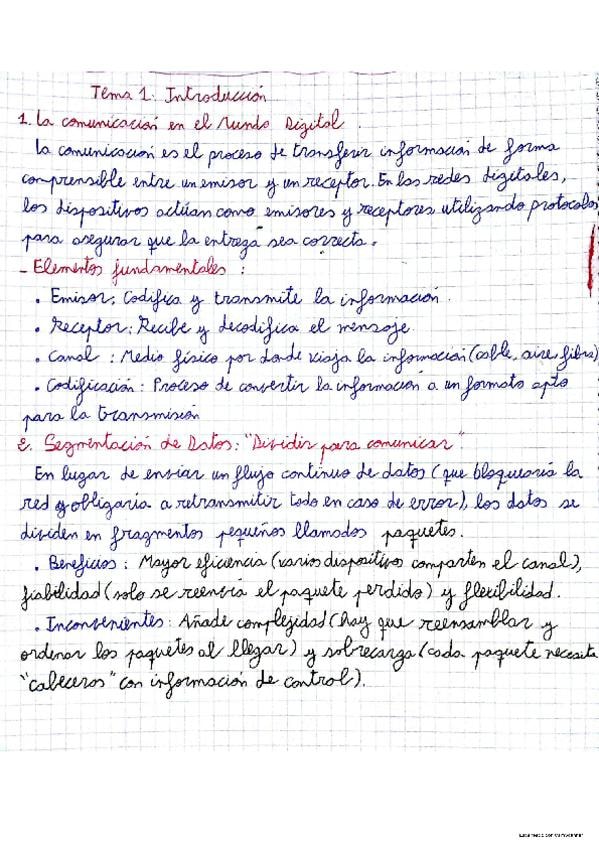 Tema 1: Introducción
1. La comunicación en el Mundo Digital.
La comunicación es el proceso de transferir información de forma
comprensible entre un emisor y un receptor. En las redes digitales,
los dispositivos actúan como emisores y receptores utilizando protocolos
para asegurar que la entrega sea correcta.
- Elementos fundamentales :
• Emisor: Codifica y transmite la información.
• Receptor: Recibe y decodifica el mensaje.
• Canal : Medio físico por donde viaja la información (cable, aire, fibra)
• Codificación : Proceso de convertir la información a un formato apto
para la transmisión
2. Segmentación de Datos: "Dividir para comunicar"
En lugar de enviar un flujo continuo de datos (que bloquearía la
red y obligaría a retransmitir todo en caso de error), los datos se
dividen en fragmentos pequeños llamados paquetes.
• Beneficios : Mayor eficiencia (varios dispositivos comparten el canal),
fiabilidad (solo se reenvía el paquete perdido) y flexibilidad.
• Inconvenientes : Añade complejidad (hay que reensamblar y
ordenar los paquetes al llegar) y sobrecarga (cada paquete necesita
"cabeceras" con información de control).